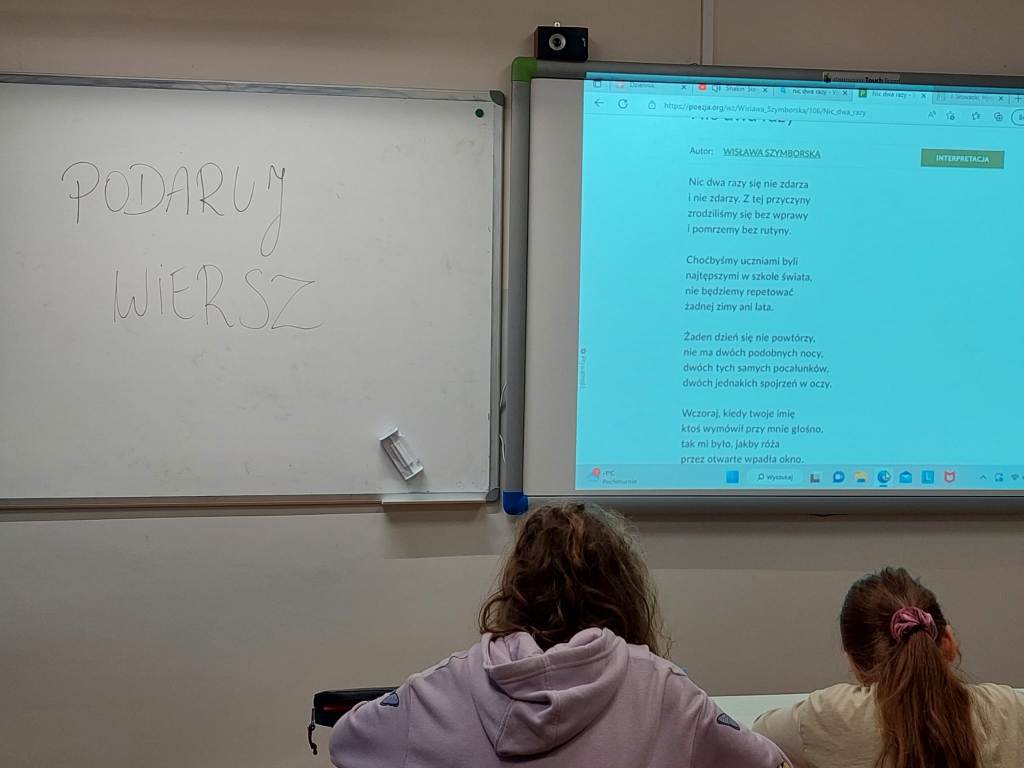 PODARUJ
WIERSZ
Touch
Dziennik
Nic dwa razy -
https://poezja.org/wz/Wislawa_Szymborska/106/Nic_dwa_razy
Autor: WISŁAWA SZYMBORSKA
INTERPRETACJA
Nic dwa razy się nie zdarza
i nie zdarzy. Z tej przyczyny
zrodziliśmy się bez wprawy
i pomrzemy bez rutyny.
Choćbyśmy uczniami byli
najtępszymi w szkole świata,
nie będziemy repetować
żadnej zimy ani lata.
Żaden dzień się nie powtórzy,
nie ma dwóch podobnych nocy,
dwóch tych samych pocałunków,
dwóch jednakich spojrzeń w oczy.
Wczoraj, kiedy twoje imię
ktoś wymówił przy mnie głośno,
tak mi było, jakby róża
przez otwarte wpadła okno.
Prywatność
-1°C
Pochmurnie
Wyszukaj